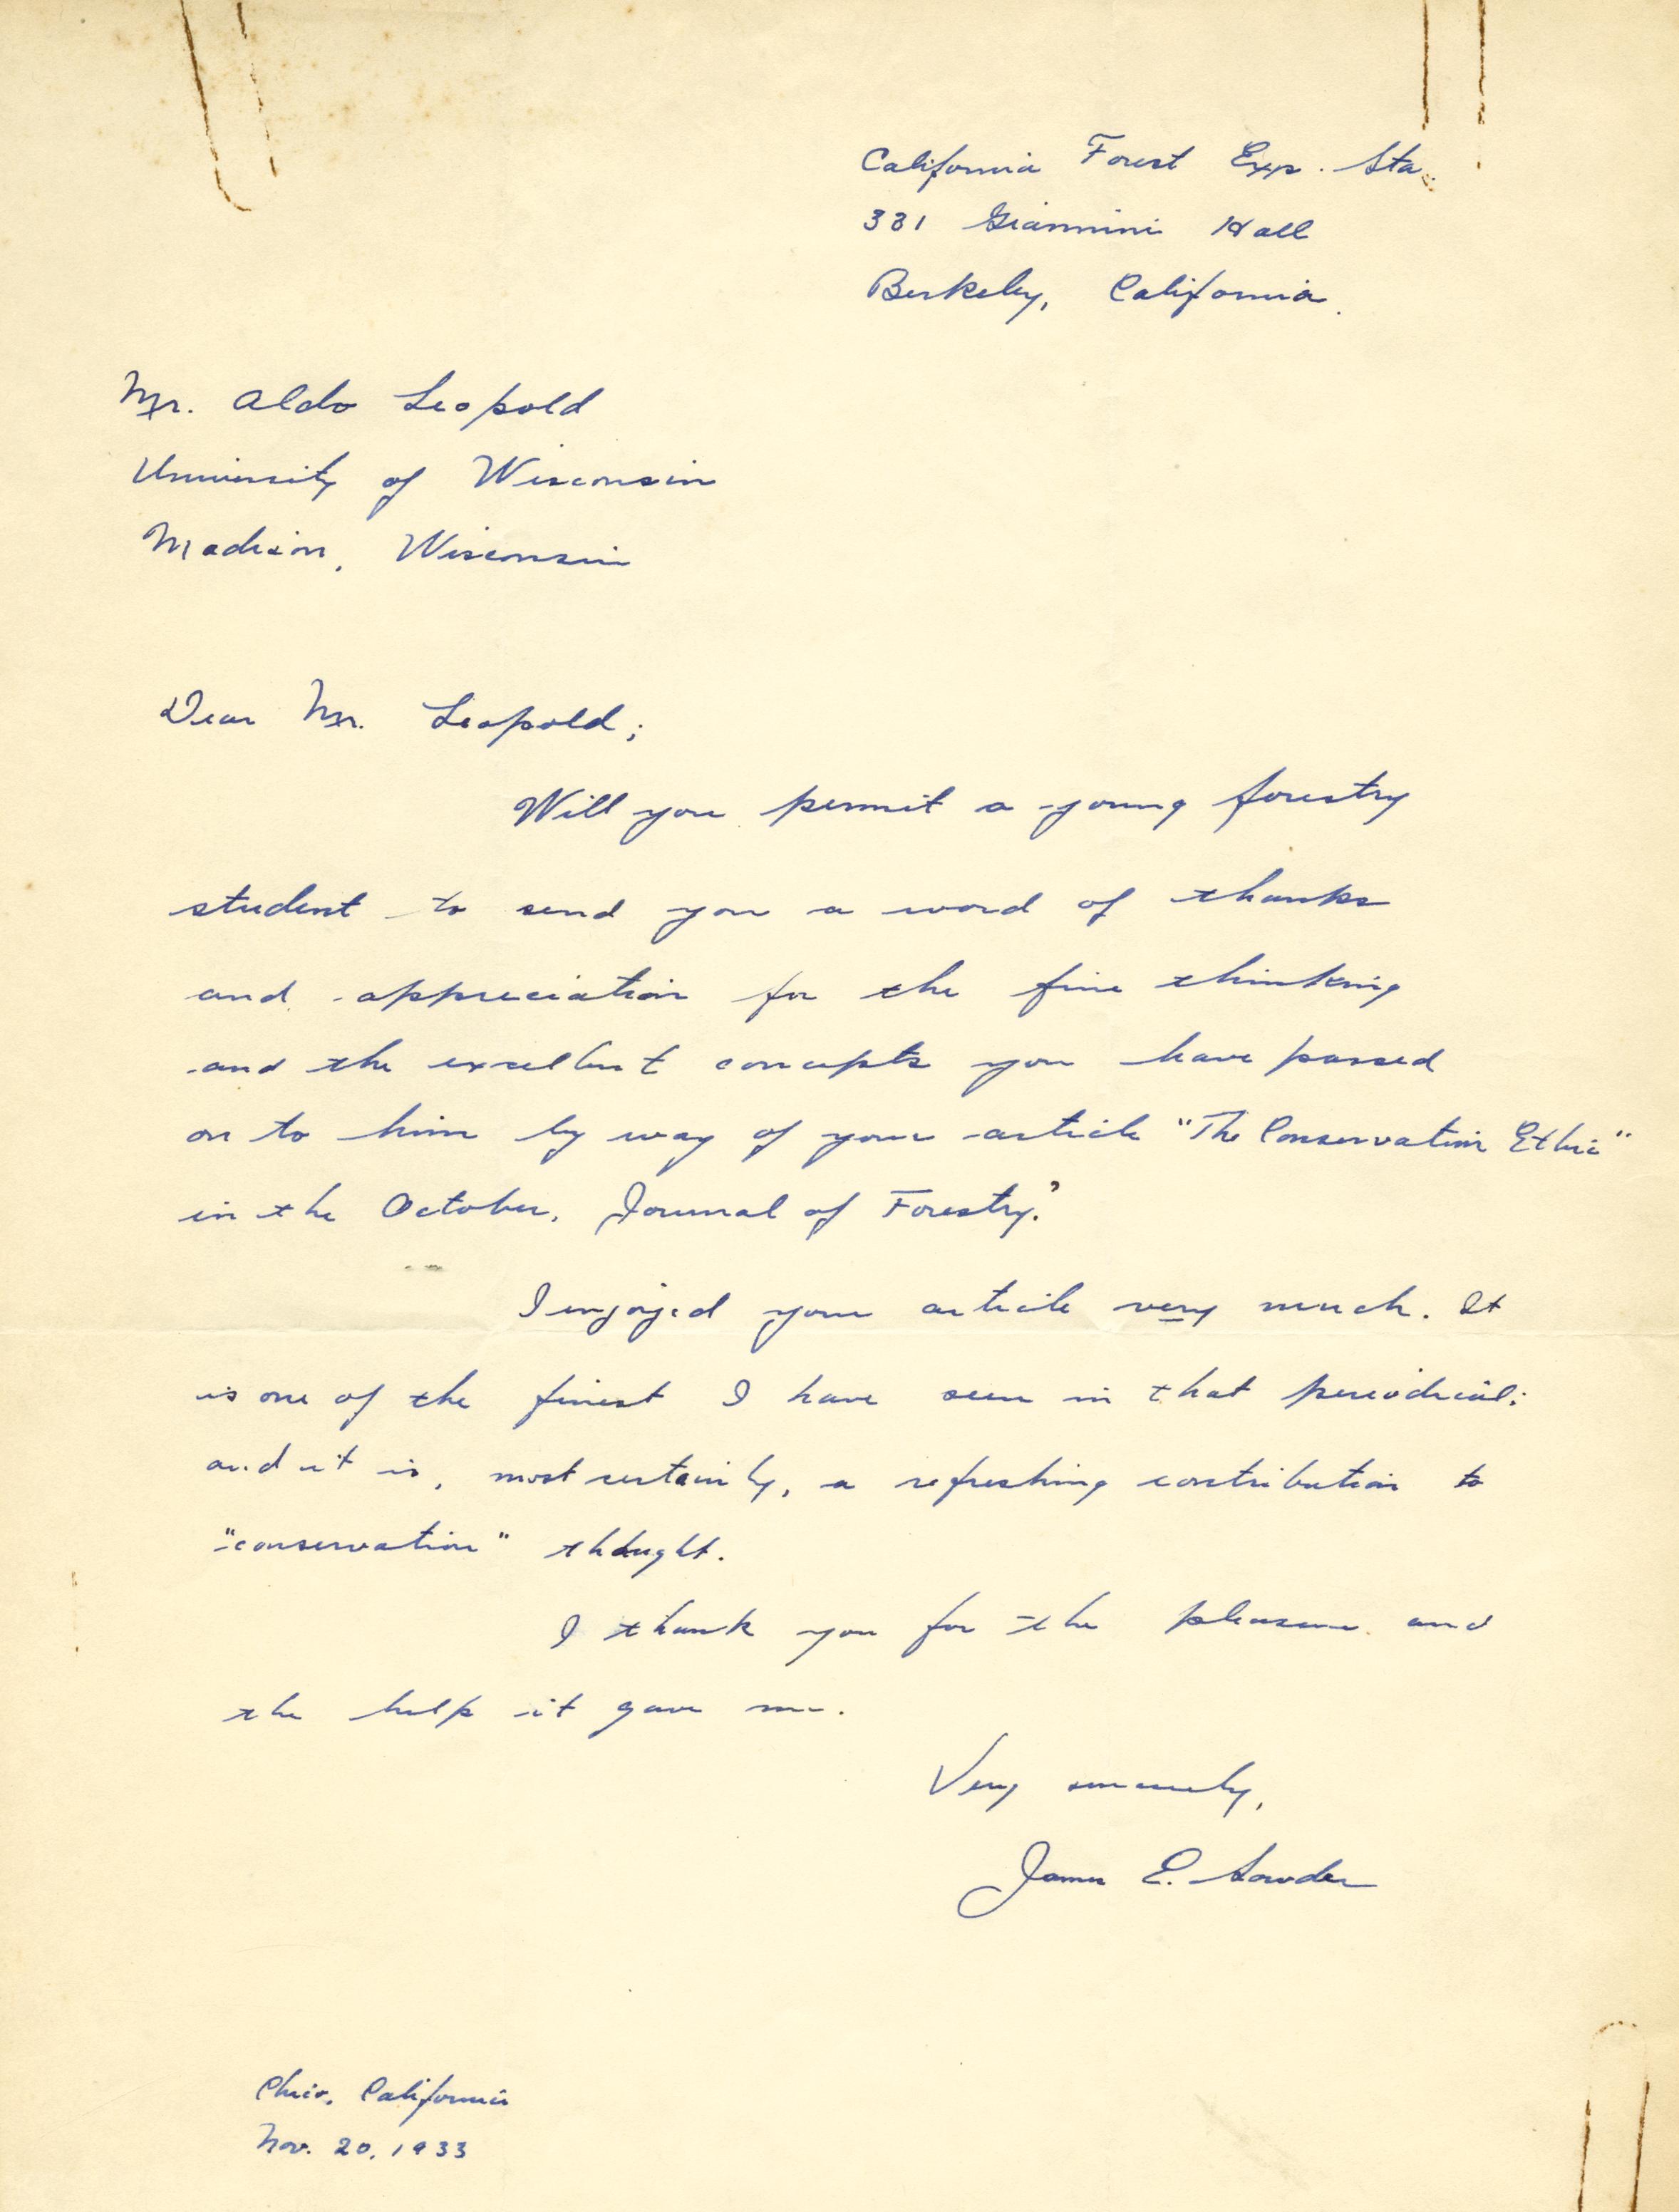 California Forest Exp. Sta.
331 Giannini Hall
Berkeley, California.
Mr. Aldo Leopold
University of Wisconsin
Madison, Wisconsin
Dear Mr. Leopold;
Will you permit a young forestry
student to send you a word of thanks
and appreciation for the fine thinking
and the excellent concepts you have passed
on to him by way of your article "The Conservation Ethic"
in the October, Journal of Forestry."
I enjoyed your article very much. It
is one of the finest I have seen in that periodical;
and it is, most certainly, a refreshing contribution to
"conservation" thought.
I thank you for the pleasure and
the help it gave me.
Very sincerely,
James E. Sowder
Chico, California
Nov. 20, 1933